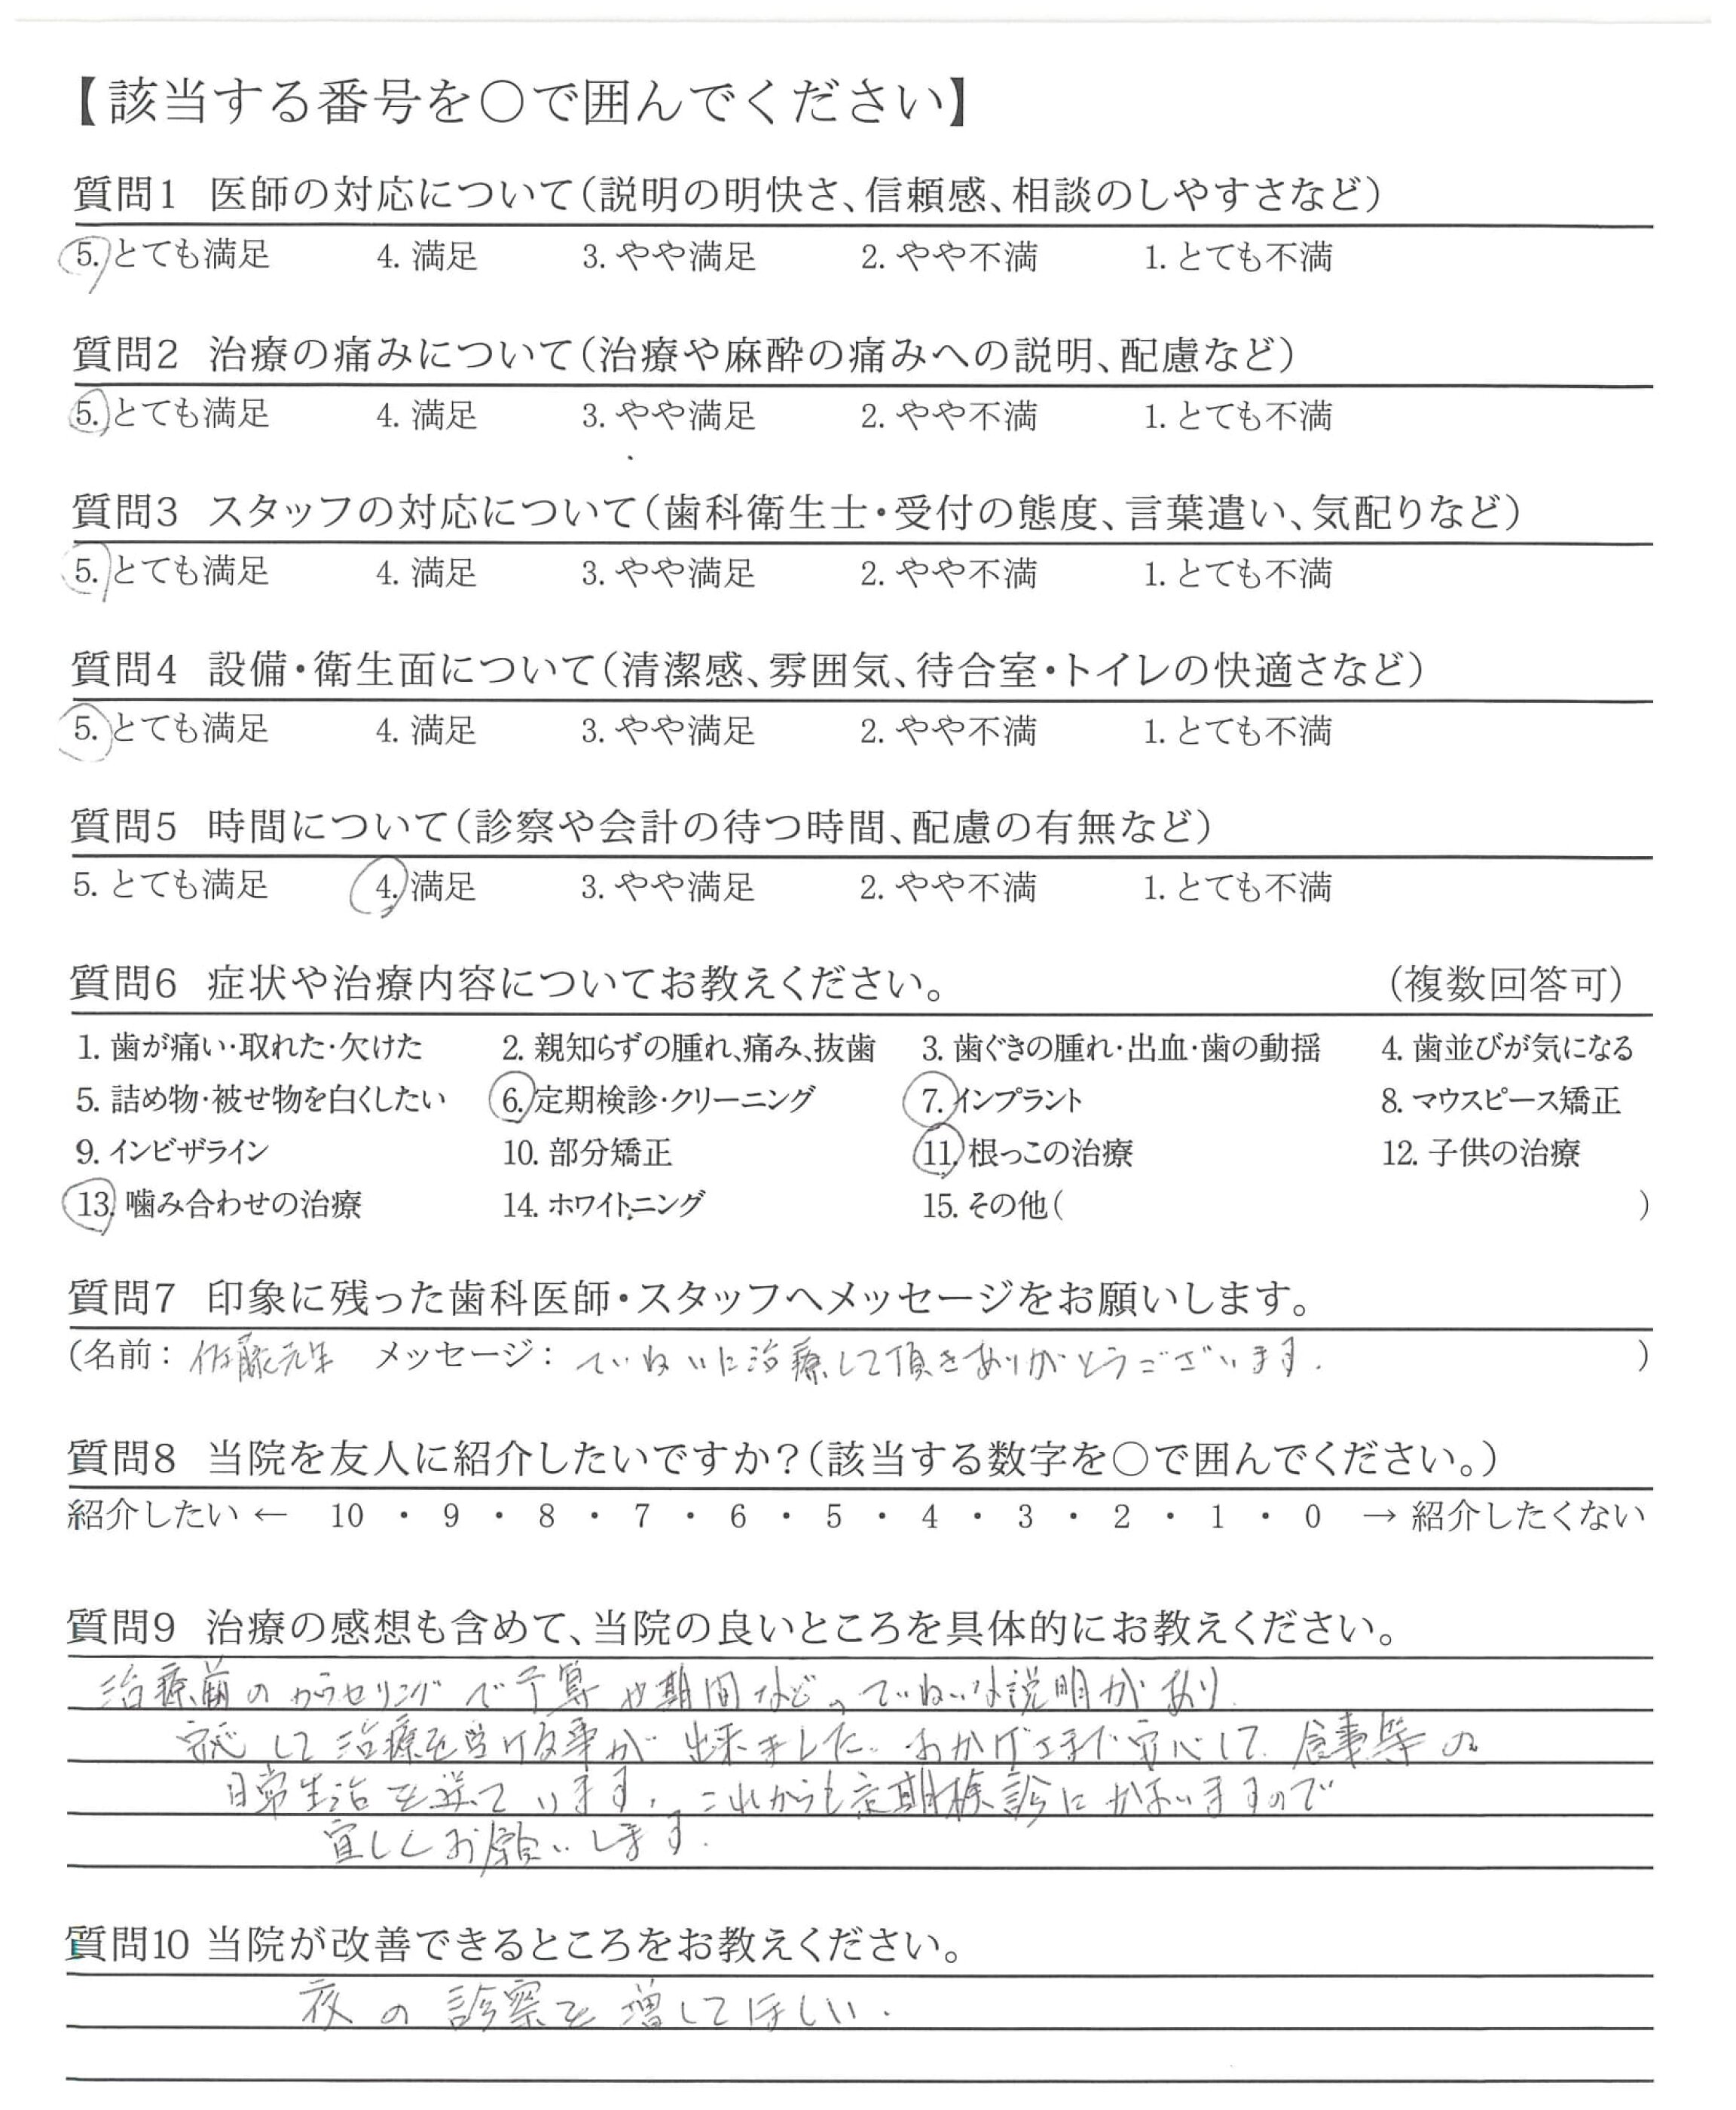 【該当する番号を○で囲んでください】
質問1 医師の対応について(説明の明快さ、信頼感、相談のしやすさなど)
5. とても満足 4. 満足 3. やや満足 2. やや不満 1. とても不満
質問2 治療の痛みについて(治療や麻酔の痛みへの説明、配慮など)
5. とても満足 4. 満足 3. やや満足 2. やや不満 1. とても不満
質問3 スタッフの対応について(歯科衛生士・受付の態度、言葉遣い、気配りなど)
5. とても満足 4. 満足 3. やや満足 2. やや不満 1. とても不満
質問4 設備・衛生面について(清潔感、雰囲気、待合室・トイレの快適さなど)
5. とても満足 4. 満足 3. やや満足 2. やや不満 1. とても不満
質問5 時間について(診察や会計の待つ時間、配慮の有無など)
5. とても満足 4. 満足 3. やや満足 2. やや不満 1. とても不満
質問6 症状や治療内容についてお教えください。 (複数回答可)
1. 歯が痛い・取れた・欠けた 2. 親知らずの腫れ、痛み、抜歯 3. 歯ぐきの腫れ・出血・歯の動揺 4. 歯並びが気になる
5. 詰め物・被せ物を白くしたい 6. 定期検診・クリーニング 7. インプラント 8. マウスピース矯正
9. インビザライン 10. 部分矯正 11. 根っこの治療 12. 子供の治療
13. 噛み合わせの治療 14. ホワイトニング 15. その他( )
質問7 印象に残った歯科医師・スタッフへメッセージをお願いします。
(名前: 佐藤先生 メッセージ: ていねいに治療して頂きありがとうございます. )
質問8 当院を友人に紹介したいですか?(該当する数字を○で囲んでください。)
紹介したい ← 10 ・ 9 ・ 8 ・ 7 ・ 6 ・ 5 ・ 4 ・ 3 ・ 2 ・ 1 ・ 0 → 紹介したくない
質問9 治療の感想も含めて、当院の良いところを具体的にお教えください。
治療前のカウンセリングで予算や期間など、ていねいな説明があり
安心して治療を受ける事が出来ました。おかげさまで安心して食事等の
日常生活を送っています。これからも定期検診にかよいますので
宜しくお願いします.
質問10 当院が改善できるところをお教えください。
夜の診察を増してほしい.